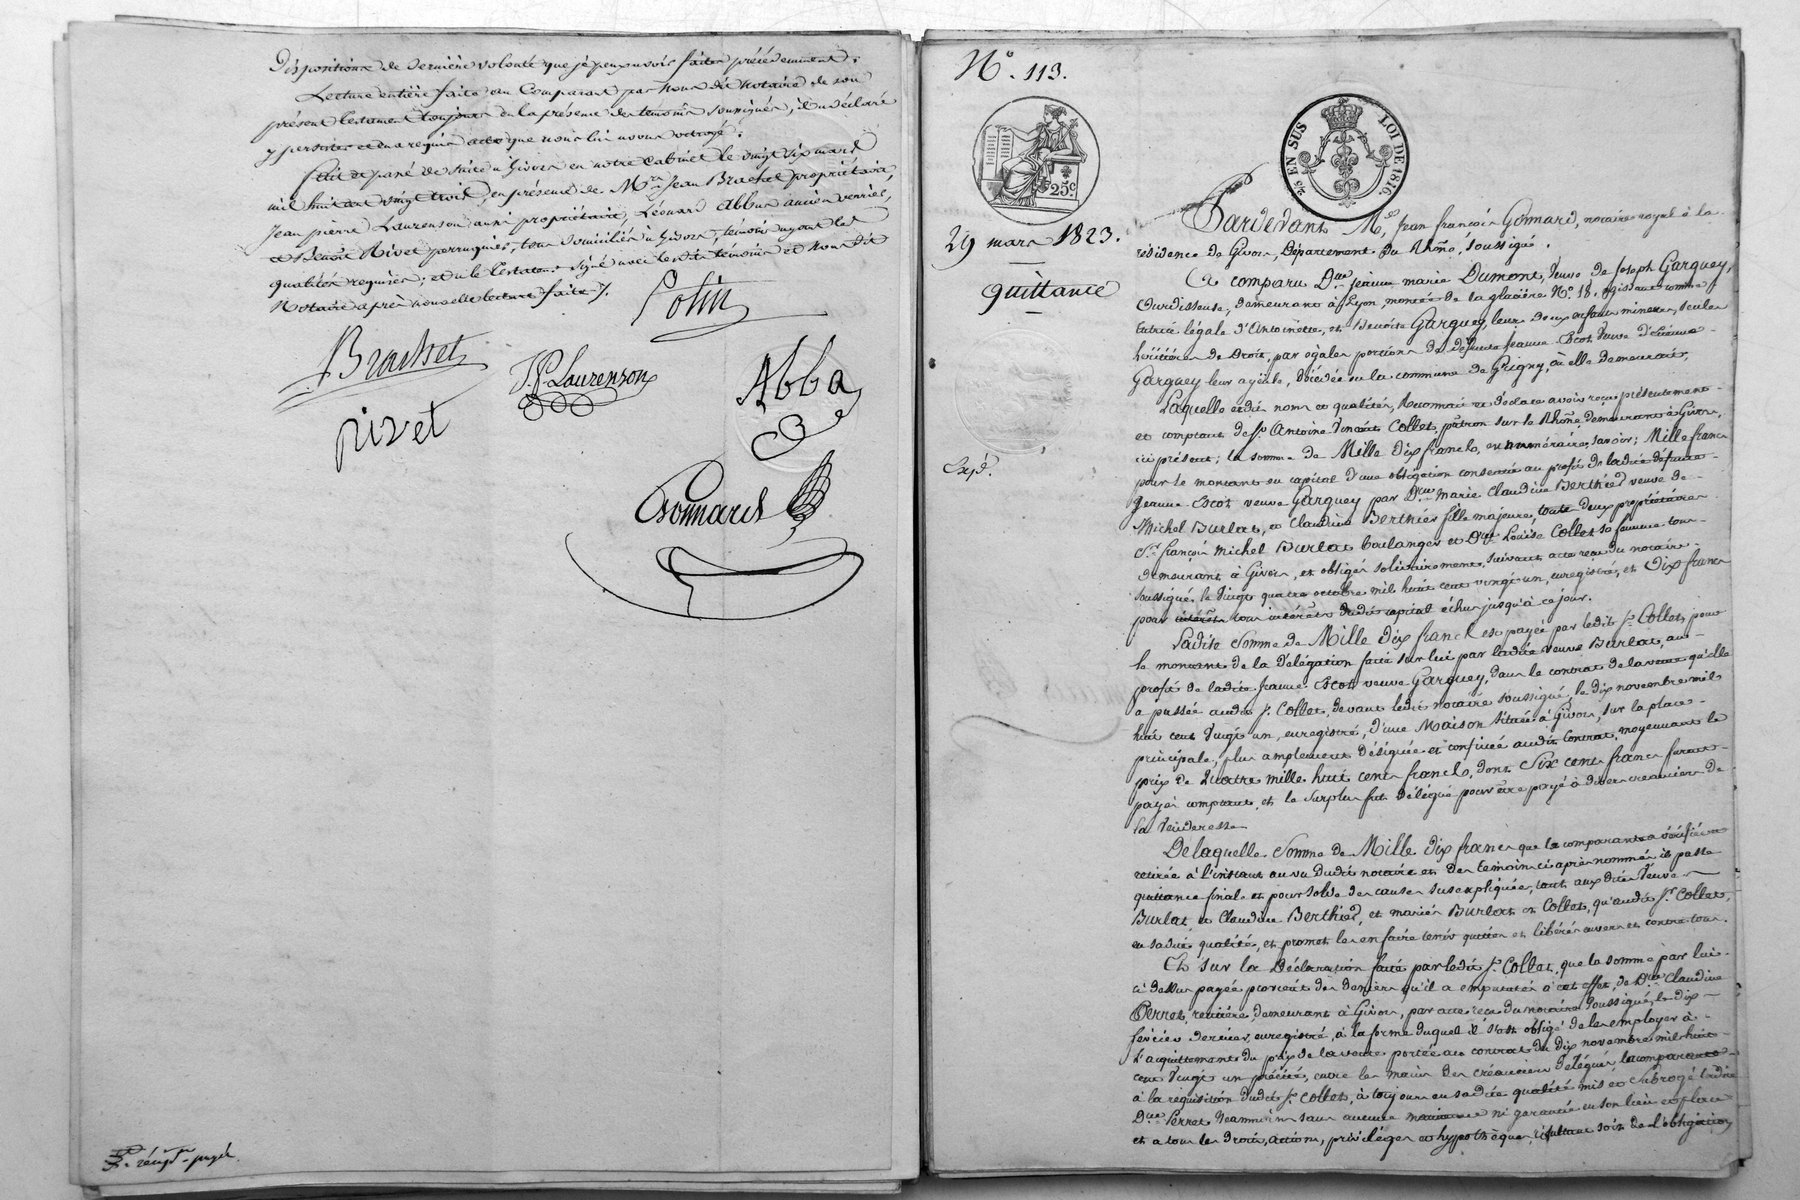 Dispositions de dernière volonté que je peux avoir faites précédemment.
Lecture entière faite au Comparant par Nous dit Notaire de son
présent testament toujours en la présence des témoins soussignés, il a déclaré
y persister et en a requis acte que nous lui avons octroyé.
fait et passé de suite à Givors en notre Cabinet le vingt six mars
mil huit cent vingt trois, en présence de Mrs. Jean Brachet propriétaire,
Jean pierre Laurenson aussi propriétaire, Léonard Abba ancien verrier,
et Benoît Rivet perruquier, tous domiciliés à Givors, témoins ayant les
qualités requises; et a le testateur signé avec lesdits témoins et Nous dit
Notaire après nouvelle lecture faite /.
Colin
Brachet
J. P. Laurenson
Abba
rivet
Gonnard
N°. 113.
25c
25 EN SUS
LOI DE 1816.
29 mars 1823.
quittance
Expé.
Pardevant Me. Jean françois Gonnard, notaire royal à la
résidence de Givors, Département du Rhône, soussigné.
A comparu Dme jeanne marie Dumont, veuve de Joseph Garguey,
Ourdisseuse, demeurant à Lyon, montée de la glacière N°. 18. agissant comme
tutrice légale d'Antoinette, et Benoîte Garguey, leurs deux enfans mineurs, seules
héritières de droit, par égales portions de défunte jeanne Escot veuve d'Etienne
Garguey leur ayeule, décédée en la commune de Grigny, où elle demeurait.
Laquelle esdits noms et qualités, reconnait et déclare avoir reçu présentement
et comptant de Sr. Antoine Vincent Collet, patron sur le Rhône, demeurant à Givors,
ici présent; la somme de Mille dix francs, en numéraire, savoir; Mille francs
pour le montant en capital d'une obligation consentie au profit de ladite défunte
Jeanne Escot veuve Garguey par Dmes marie Claudine Berthier veuve de
Michel Burlat, et Claudine Berthier fille majeure, toutes deux propriétaires
Sr. françois Michel Burlat boulanger et Dme Louise Collet sa femme tous
demeurant à Givors, et obligés solidairement, suivant acte reçu du notaire
soussigné le vingt quatre octobre mil huit cent vingt un, enregistré, et Dix francs
pour intérêts tous intérêts dudit capital échus jusqu'à ce jour.
Ladite Somme de Mille dix francs est payée par ledit Sr. Collet, pour
le montant de la délégation faite sur lui par ladite veuve Burlat, au
profit de ladite Jeanne Escot veuve Garguey, dans le contrat de la vente qu'elle
a passée audit Sr. Collet, devant ledit notaire soussigné, le dix novembre mil
huit cent vingt un, enregistré, d'une Maison située à Givors, sur la place
principale, plus amplement désignée et confinée audit Contrat, moyennant le
prix de Quatre mille huit cents francs, dont Six cents francs furent
payés comptant, et le surplus fut délégué pour être payé à divers créanciers de
la Venderesse
De laquelle Somme de Mille dix francs que la comparante a vérifiée et
retirée à l'instant au vu dudit notaire et des témoins ci après nommés, il passe
quittance finale et pour solde des causes susexpliquées, tant aux dites Veuve
Burlat, et Claudine Berthier, et mariés Burlat et Collet, qu'audit Sr. Collet,
en sadite qualité, et promet les en faire tenir quittes et libérés envers et contre tous.
Et sur la Déclaration faite par ledit Sr. Collet, que la somme par lui
ci dessus payée provient des deniers qu'il a empruntés à cet effet, de Dme Claudine
Perret, rentière demeurant à Givors, par acte reçu du notaire soussigné, le dix
février dernier, enregistré, à la forme duquel il s'est obligé de les employer à
l'acquittement du prix de la vente portée au contrat du dix novembre mil huit
cent vingt un précité, entre les mains des créanciers délégués, la comparante
à la réquisition dudit Sr. Collet, a toujours en sadite qualité mis et subrogé ladite
Dme Perret néanmoins sans aucune maintenue ni garantie en son lieu et place
et à tous les droits, actions, privilèges et hypothèques, résultant soit de l'obligation